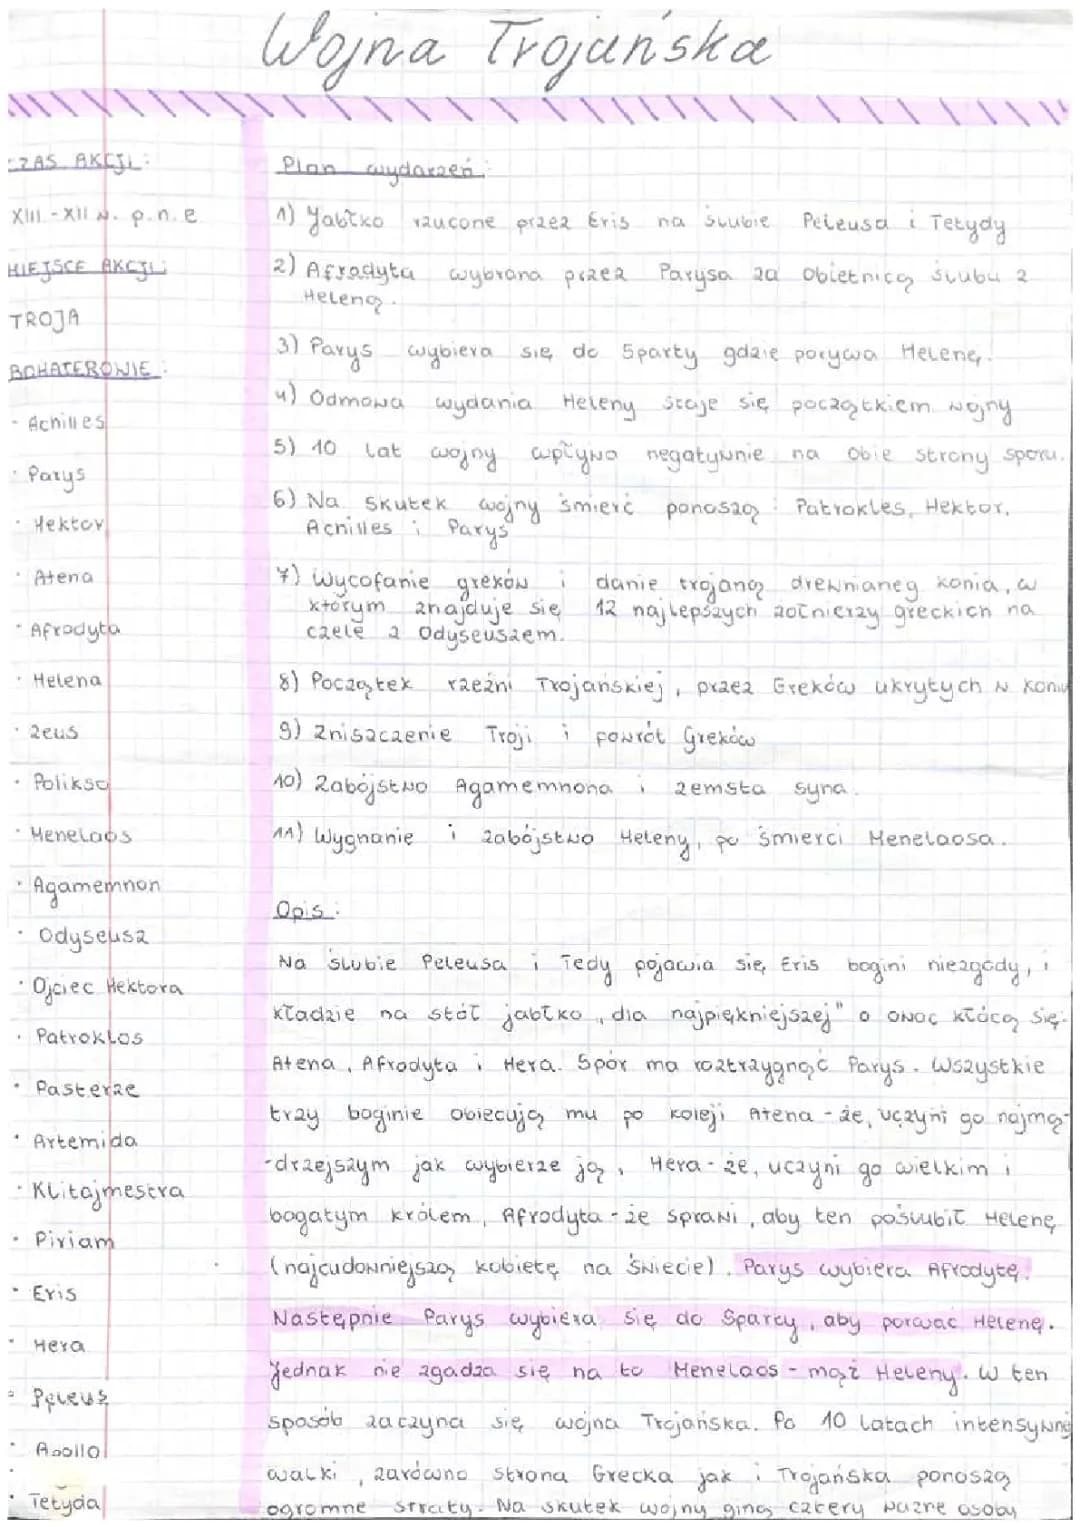 Wojna Trojańska
CZAS AKCJI:
XIII-XII w. p.n.e
MIEJSCE AKCJI:
TROJA
BOHATEROWIE:
· Achilles
· Parys
· Hektor
· Atena
· Afrodyta
· Helena
· Zeus
· Poliksa
· Menelaos
· Agamemnon
· Odyseusz
· Ojciec Hektora
· Patroklos
· Pasterze
· Artemida
· Klitajmestra
· Piriam
· Eris
· Hera
· Peleus
· Apollo
· Tetyda
Plan wydarzeń:
1) Jabłko rzucone przez Eris na ślubie Peleusa i Tetydy
2) Afrodyta wybrana przez Parysa za obietnicą ślubu z
Heleną.
3) Parys wybiera się do Sparty gdzie porywa Helenę.
4) Odmowa wydania Heleny staje się początkiem wojny
5) 10 lat wojny wpływa negatywnie na obie strony sporu.
6) Na skutek wojny śmierć ponoszą: Patrokles, Hektor,
Achilles i Parys
7) Wycofanie greków i danie trojaną drewnianeg konia, w
którym znajduje się 12 najlepszych żołnierzy greckich na
czele z Odyseuszem.
8) Początek rzeźni Trojańskiej, przez Greków ukrytych w koniu
9) Zniszczenie Troji i powrót Greków
10) Zabójstwo Agamemnona i zemsta syna.
11) Wygnanie i zabójstwo Heleny, po śmierci Menelaosa.
Opis:
Na ślubie Peleusa i Tedy pojawia się Eris bogini niezgody, i
kładzie na stół jabłko „dla najpiękniejszej" o owoc kłócą się:
Atena, Afrodyta i Hera. Spór ma roztrzygnąć Parys. Wszystkie
trzy boginie obiecują mu po koleji Atena - że, uczyni go najmą-
-drzejszym jak wybierze ją, Hera - że, uczyni go wielkim i
bogatym królem, Afrodyta - że sprawi, aby ten poślubił Helenę
(najcudowniejszą kobietę na świecie). Parys wybiera Afrodytę.
Następnie Parys wybiera się do Sparty, aby porwać Helenę.
Jednak nie zgadza się na to Menelaos - mąż Heleny. W ten
sposób zaczyna się wojna Trojańska. Po 10 latach intensywnej
walki, zarówno strona Grecka jak i Trojańska ponoszą
ogromne straty. Na skutek wojny giną cztery ważne osoby